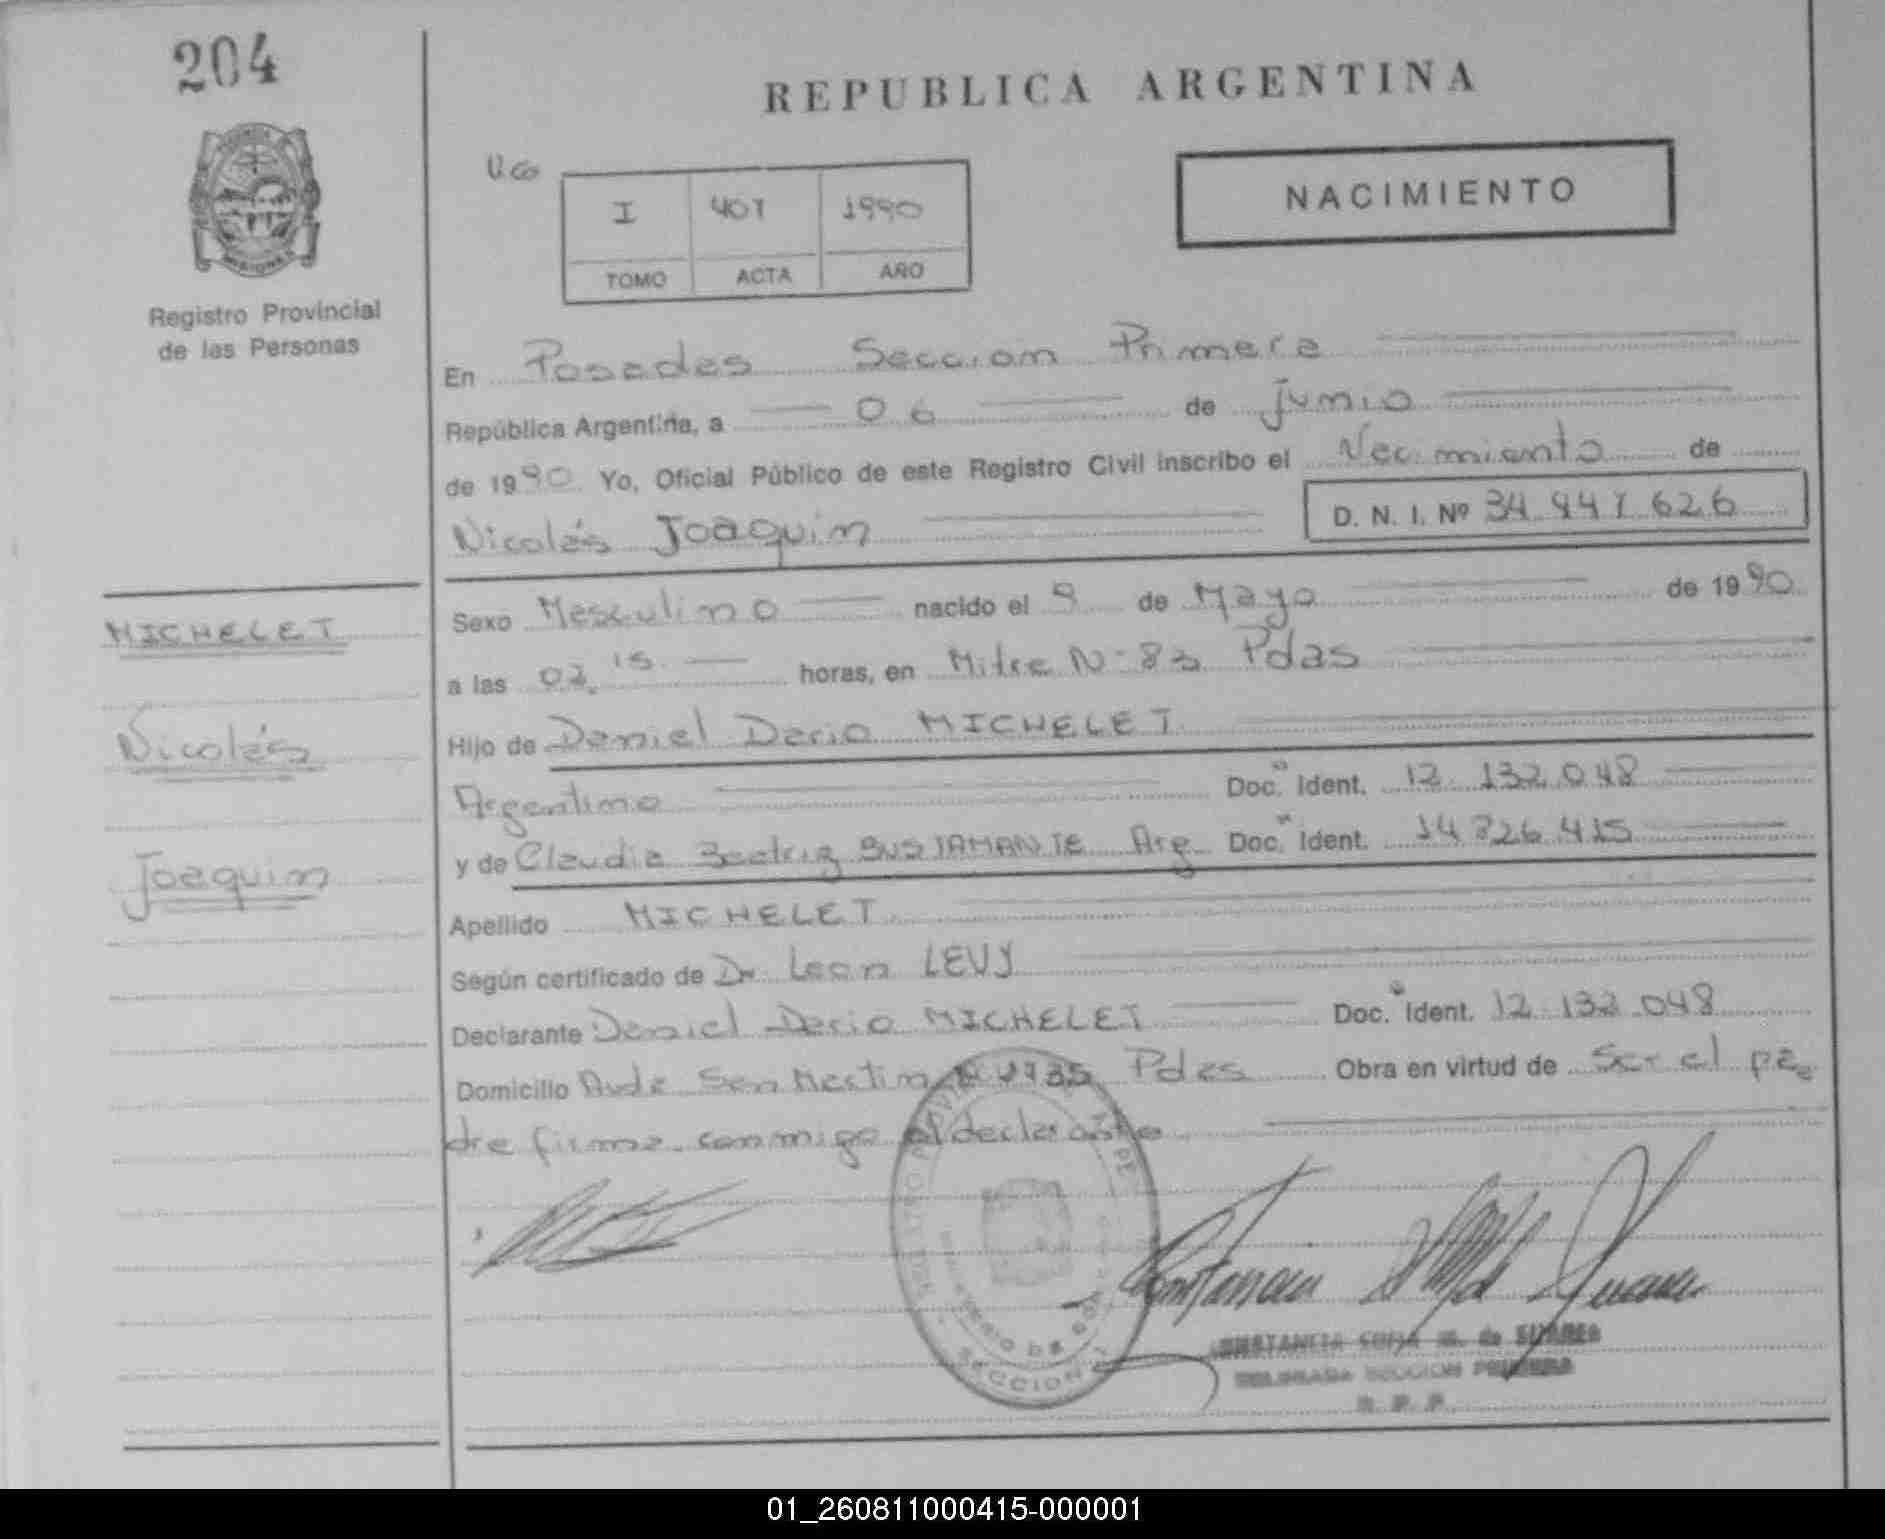 204
REPUBLICA ARGENTINA
NACIMIENTO
I 407 1990
TOMO ACTA AÑO
Registro Provincial
de las Personas
En Posadas Sección Primera
República Argentina, a 06 de junio
de 1990 Yo, Oficial Público de este Registro Civil inscribo el Nacimiento de
Nicolás Joaquin D. N. I. Nº
MICHELET
Nicolás
Joaquin
Sexo Masculino nacido el 9 de Mayo de 1990
a las 02.15 horas, en Mitre Nº 83 Pdas
Hijo de Daniel Dario MICHELET
Argentino Doc. Ident. 12.132.048
y de Claudia Beatriz BUSTAMANTE Arg Doc. Ident.
Apellido MICHELET
Según certificado de Dr. Leon LEVY
Declarante Daniel Dario MICHELET Doc. Ident. 12.132.048
Domicilio Avda San Martin Pdas Obra en virtud de Ser el pa
dre firma conmigo el declarante
SECCION
CONSTANCIA SOFIA M. de SUAREZ
DELEGADA SECCION PRIMERA
R. P. P.
01_260811000415-000001